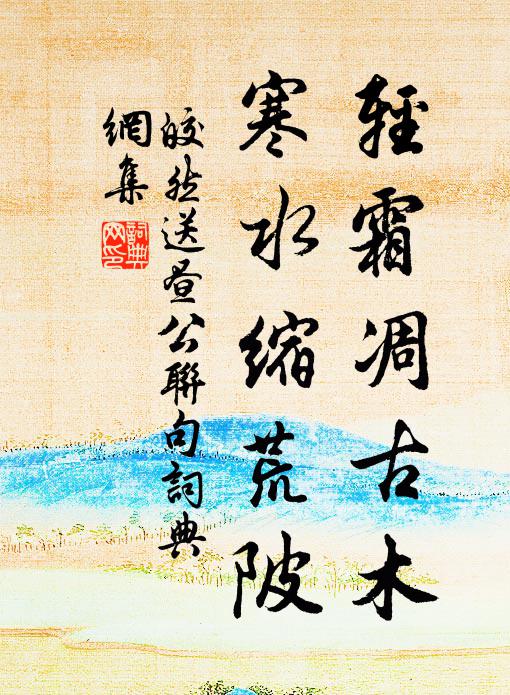 輕霜凋古木
寒水縮荒陂
皎然送昼公聯句詞典
網集
詞典
网印